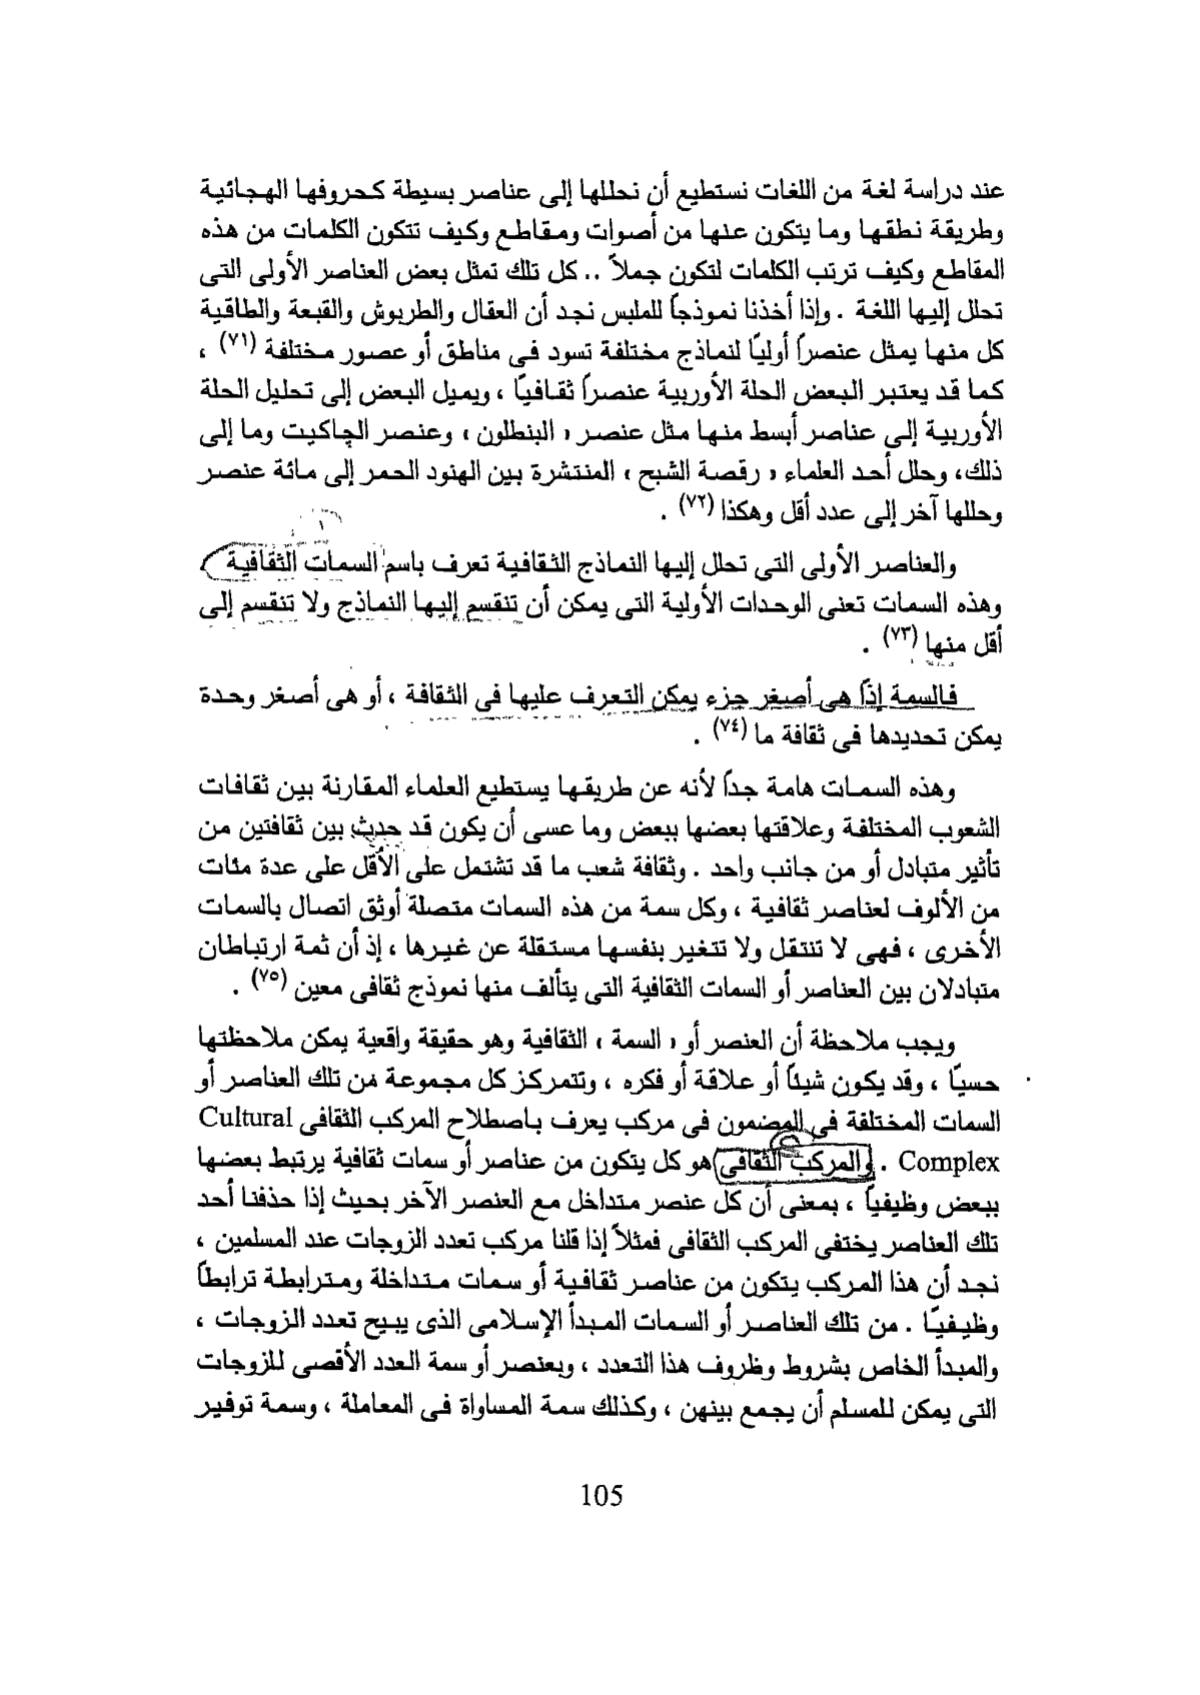 عند دراسة لغة من اللغات نستطيع أن نحللها إلى عناصر بسيطة كحروفها الهجائية
وطريقة نطقها وما يتكون عنها من أصوات ومقاطع وكيف تتكون الكلمات من هذه
المقاطع وكيف ترتب الكلمات لتكون جملاً .. كل تلك تمثل بعض العناصر الأولى التى
تحلل إليها اللغة . وإذا أخذنا نموذجاً للملبس نجد أن العقال والطربوش والقبعة والطاقية
كل منها يمثل عنصراً أولياً لنماذج مختلفة تسود فى مناطق أو عصور مختلفة (٧١) ،
كما قد يعتبر البعض الحلة الأوربية عنصراً ثقافياً ، ويميل البعض إلى تحليل الحلة
الأوربية إلى عناصر أبسط منها مثل عنصر « البنطلون » وعنصر الچاكيت وما إلى
ذلك، وحلل أحد العلماء « رقصة الشبح » المنتشرة بين الهنود الحمر إلى مائة عنصر
وحللها آخر إلى عدد أقل وهكذا (٧٢) .
والعناصر الأولى التى تحلل إليها النماذج الثقافية تعرف باسم السمات الثقافية ،
وهذه السمات تعنى الوحدات الأولية التى يمكن أن تنقسم إليها النماذج ولا تنقسم إلى
أقل منها (٧٣) .
فالسمة إذاً هى أصغر جزء يمكن التعرف عليها فى الثقافة ، أو هى أصغر وحدة
يمكن تحديدها فى ثقافة ما (٧٤) .
وهذه السمات هامة جداً لأنه عن طريقها يستطيع العلماء المقارنة بين ثقافات
الشعوب المختلفة وعلاقتها بعضها ببعض وما عسى أن يكون قد حدث بين ثقافتين من
تأثير متبادل أو من جانب واحد . وثقافة شعب ما قد تشتمل على الأقل على عدة مئات
من الألوف لعناصر ثقافية ، وكل سمة من هذه السمات متصلة أوثق اتصال بالسمات
الأخرى ، فهى لا تنتقل ولا تتغير بنفسها مستقلة عن غيرها ، إذ أن ثمة ارتباطان
متبادلان بين العناصر أو السمات الثقافية التى يتألف منها نموذج ثقافى معين (٧٥) .
ويجب ملاحظة أن العنصر أو « السمة » الثقافية وهو حقيقة واقعية يمكن ملاحظتها
حسياً ، وقد يكون شيئاً أو علاقة أو فكره ، وتتمركز كل مجموعة من تلك العناصر أو
السمات المختلفة فى المضمون فى مركب يعرف باصطلاح المركب الثقافى Cultural
Complex . والمركب الثقافى هو كل يتكون من عناصر أو سمات ثقافية يرتبط بعضها
ببعض وظيفياً ، بمعنى أن كل عنصر متداخل مع العنصر الآخر بحيث إذا حذفنا أحد
تلك العناصر يختفى المركب الثقافى فمثلاً إذا قلنا مركب تعدد الزوجات عند المسلمين ،
نجد أن هذا المركب يتكون من عناصر ثقافية أو سمات متداخلة ومترابطة ترابطاً
وظيفياً . من تلك العناصر أو السمات المبدأ الإسلامى الذى يبيح تعدد الزوجات ،
والمبدأ الخاص بشروط وظروف هذا التعدد ، وبعنصر أو سمة العدد الأقصى للزوجات
التى يمكن للمسلم أن يجمع بينهن ، وكذلك سمة المساواة فى المعاملة ، وسمة توفير
105